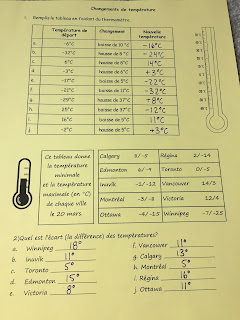 Changements de température
1. Remplis le tableau en t'aidant du thermomètre.
Température de départ Changement Nouvelle température
a. -6°C baisse de 10 °C -16°C
b. hausse de 8 °C -24°C
c. 6°C hausse de 8°C 14°C
d. -3°C hausse de +3°C
e. -17°C baisse de 5°C -22°C
f. -21°C baisse de 11°C -32°C
g. -29°C hausse de 37°C +8°C
h. 25°C baisse de 37°C -12°C
i. 16°C baisse de 5°C 11°C
j. -2°C hausse de 5°C +3°C
Ce tableau donne la température minimale et la température maximale (en °C) de chaque ville le 20 mars
Calgary 3/-5 Régina 2/-14
Edmonton 6/-9 Toronto 0/-5
Inuvik -1/-12 Vancouver 14/3
Montréal -3/-8 Victoria 12/4
Ottawa -4/-15 Winnipeg -7/-25
2)Quel est l'écart (la différence) des températures?
a. Winnipeg 18° f. Vancouver 11°
b. Inuvik 11° g. Calgary 13°
c. Toronto 5° h. Montréal 5°
d. Edmonton 15° i. Régina 16°
e. Victoria 8° j. Ottawa 11°